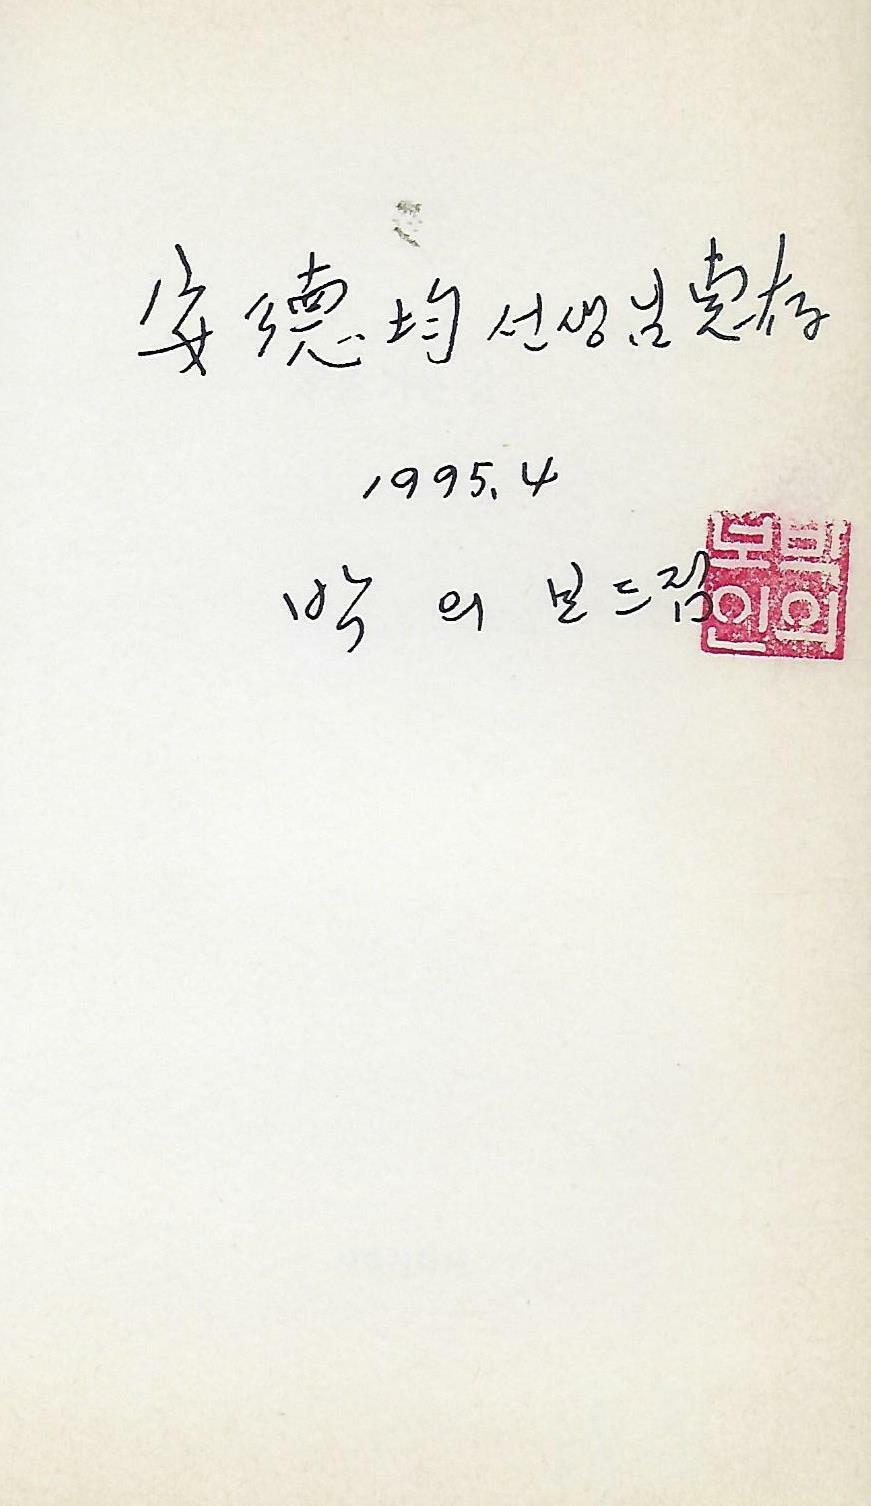 安德均 선생님 惠存
1995.4
박 의 보 드림
박의
보인